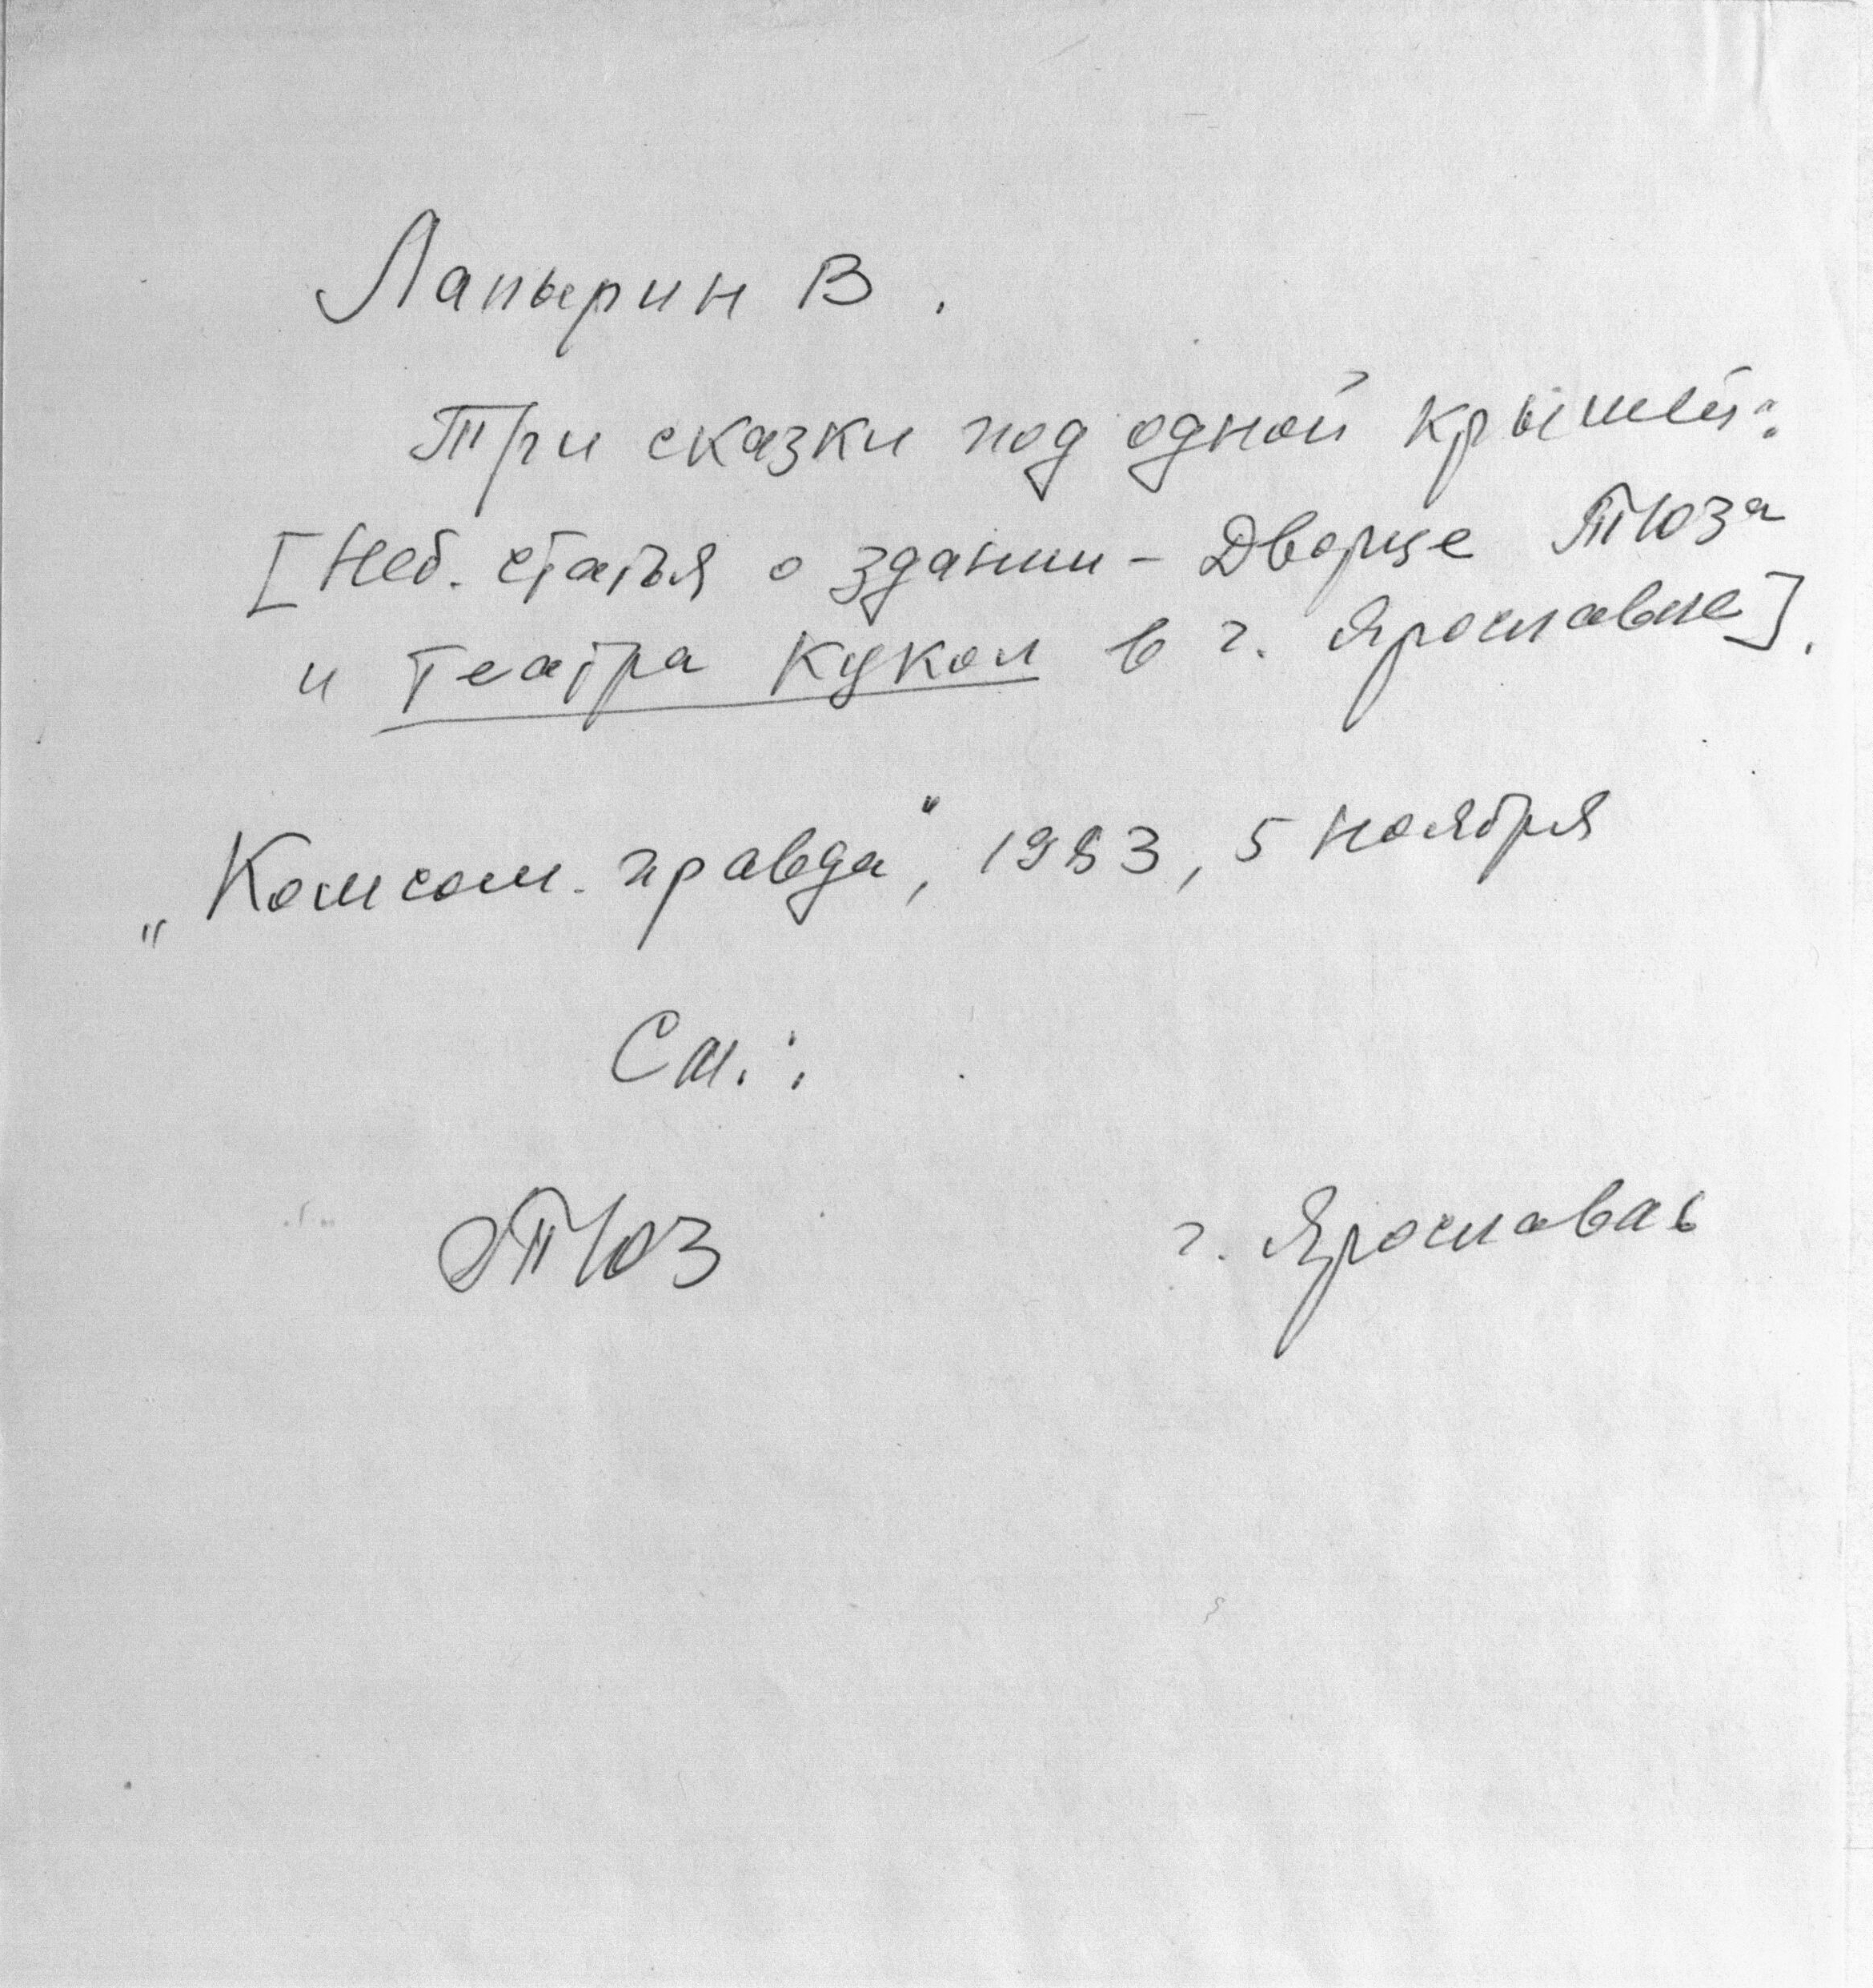 Лапырин В.
Три сказки под одной крышей:
[Неб. статья о здании - Дворце ТЮЗа
и Театра Кукол в г. Ярославле].
„Комсом. правда", 1983, 5 ноября
См.:
ТЮЗ г. Ярославль